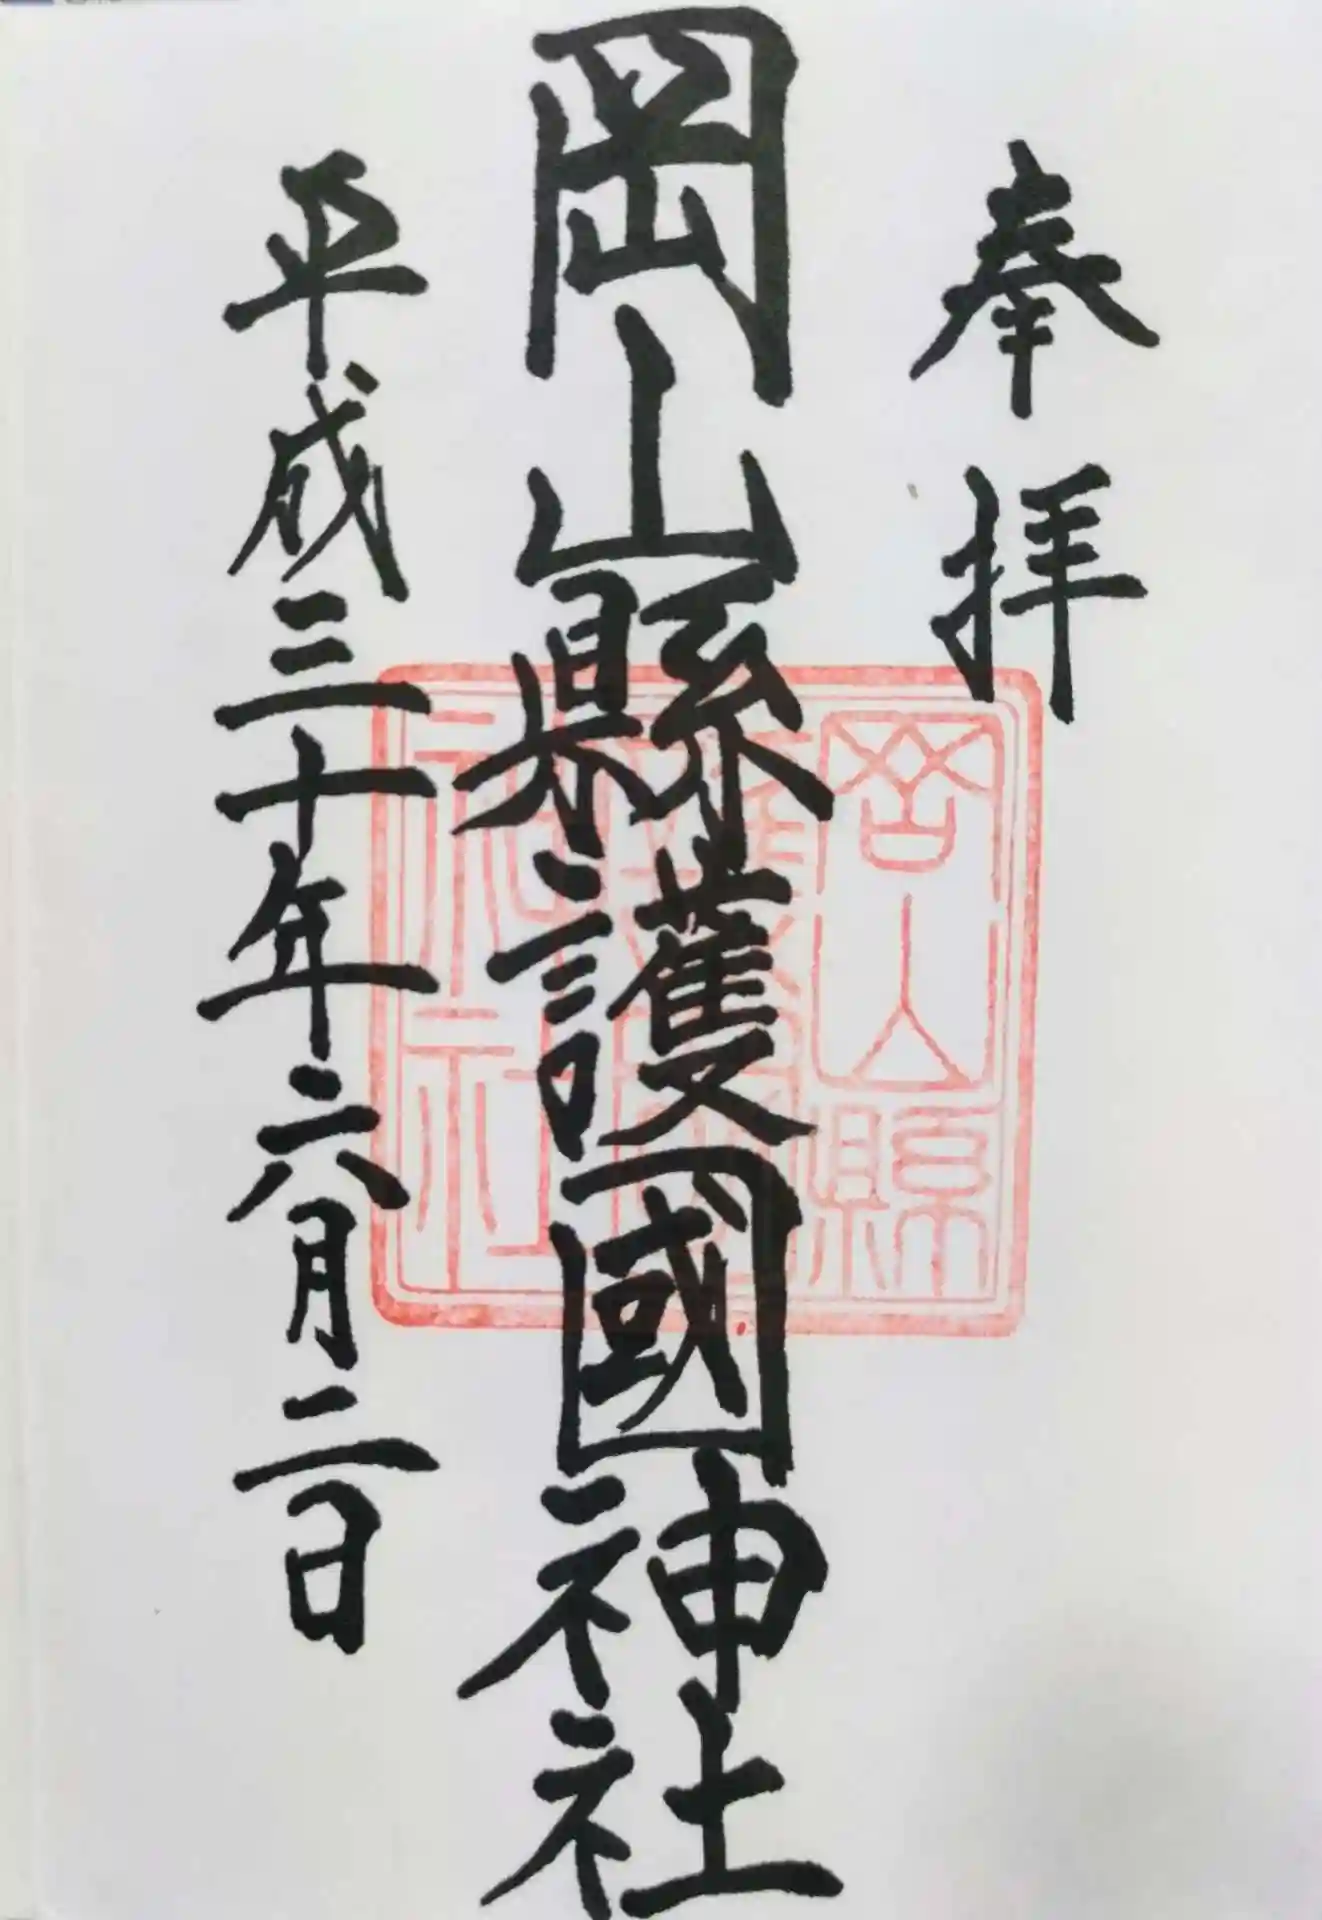 奉拝
岡山縣護國神社
岡山縣
護國
神社
平成三十年六月二日